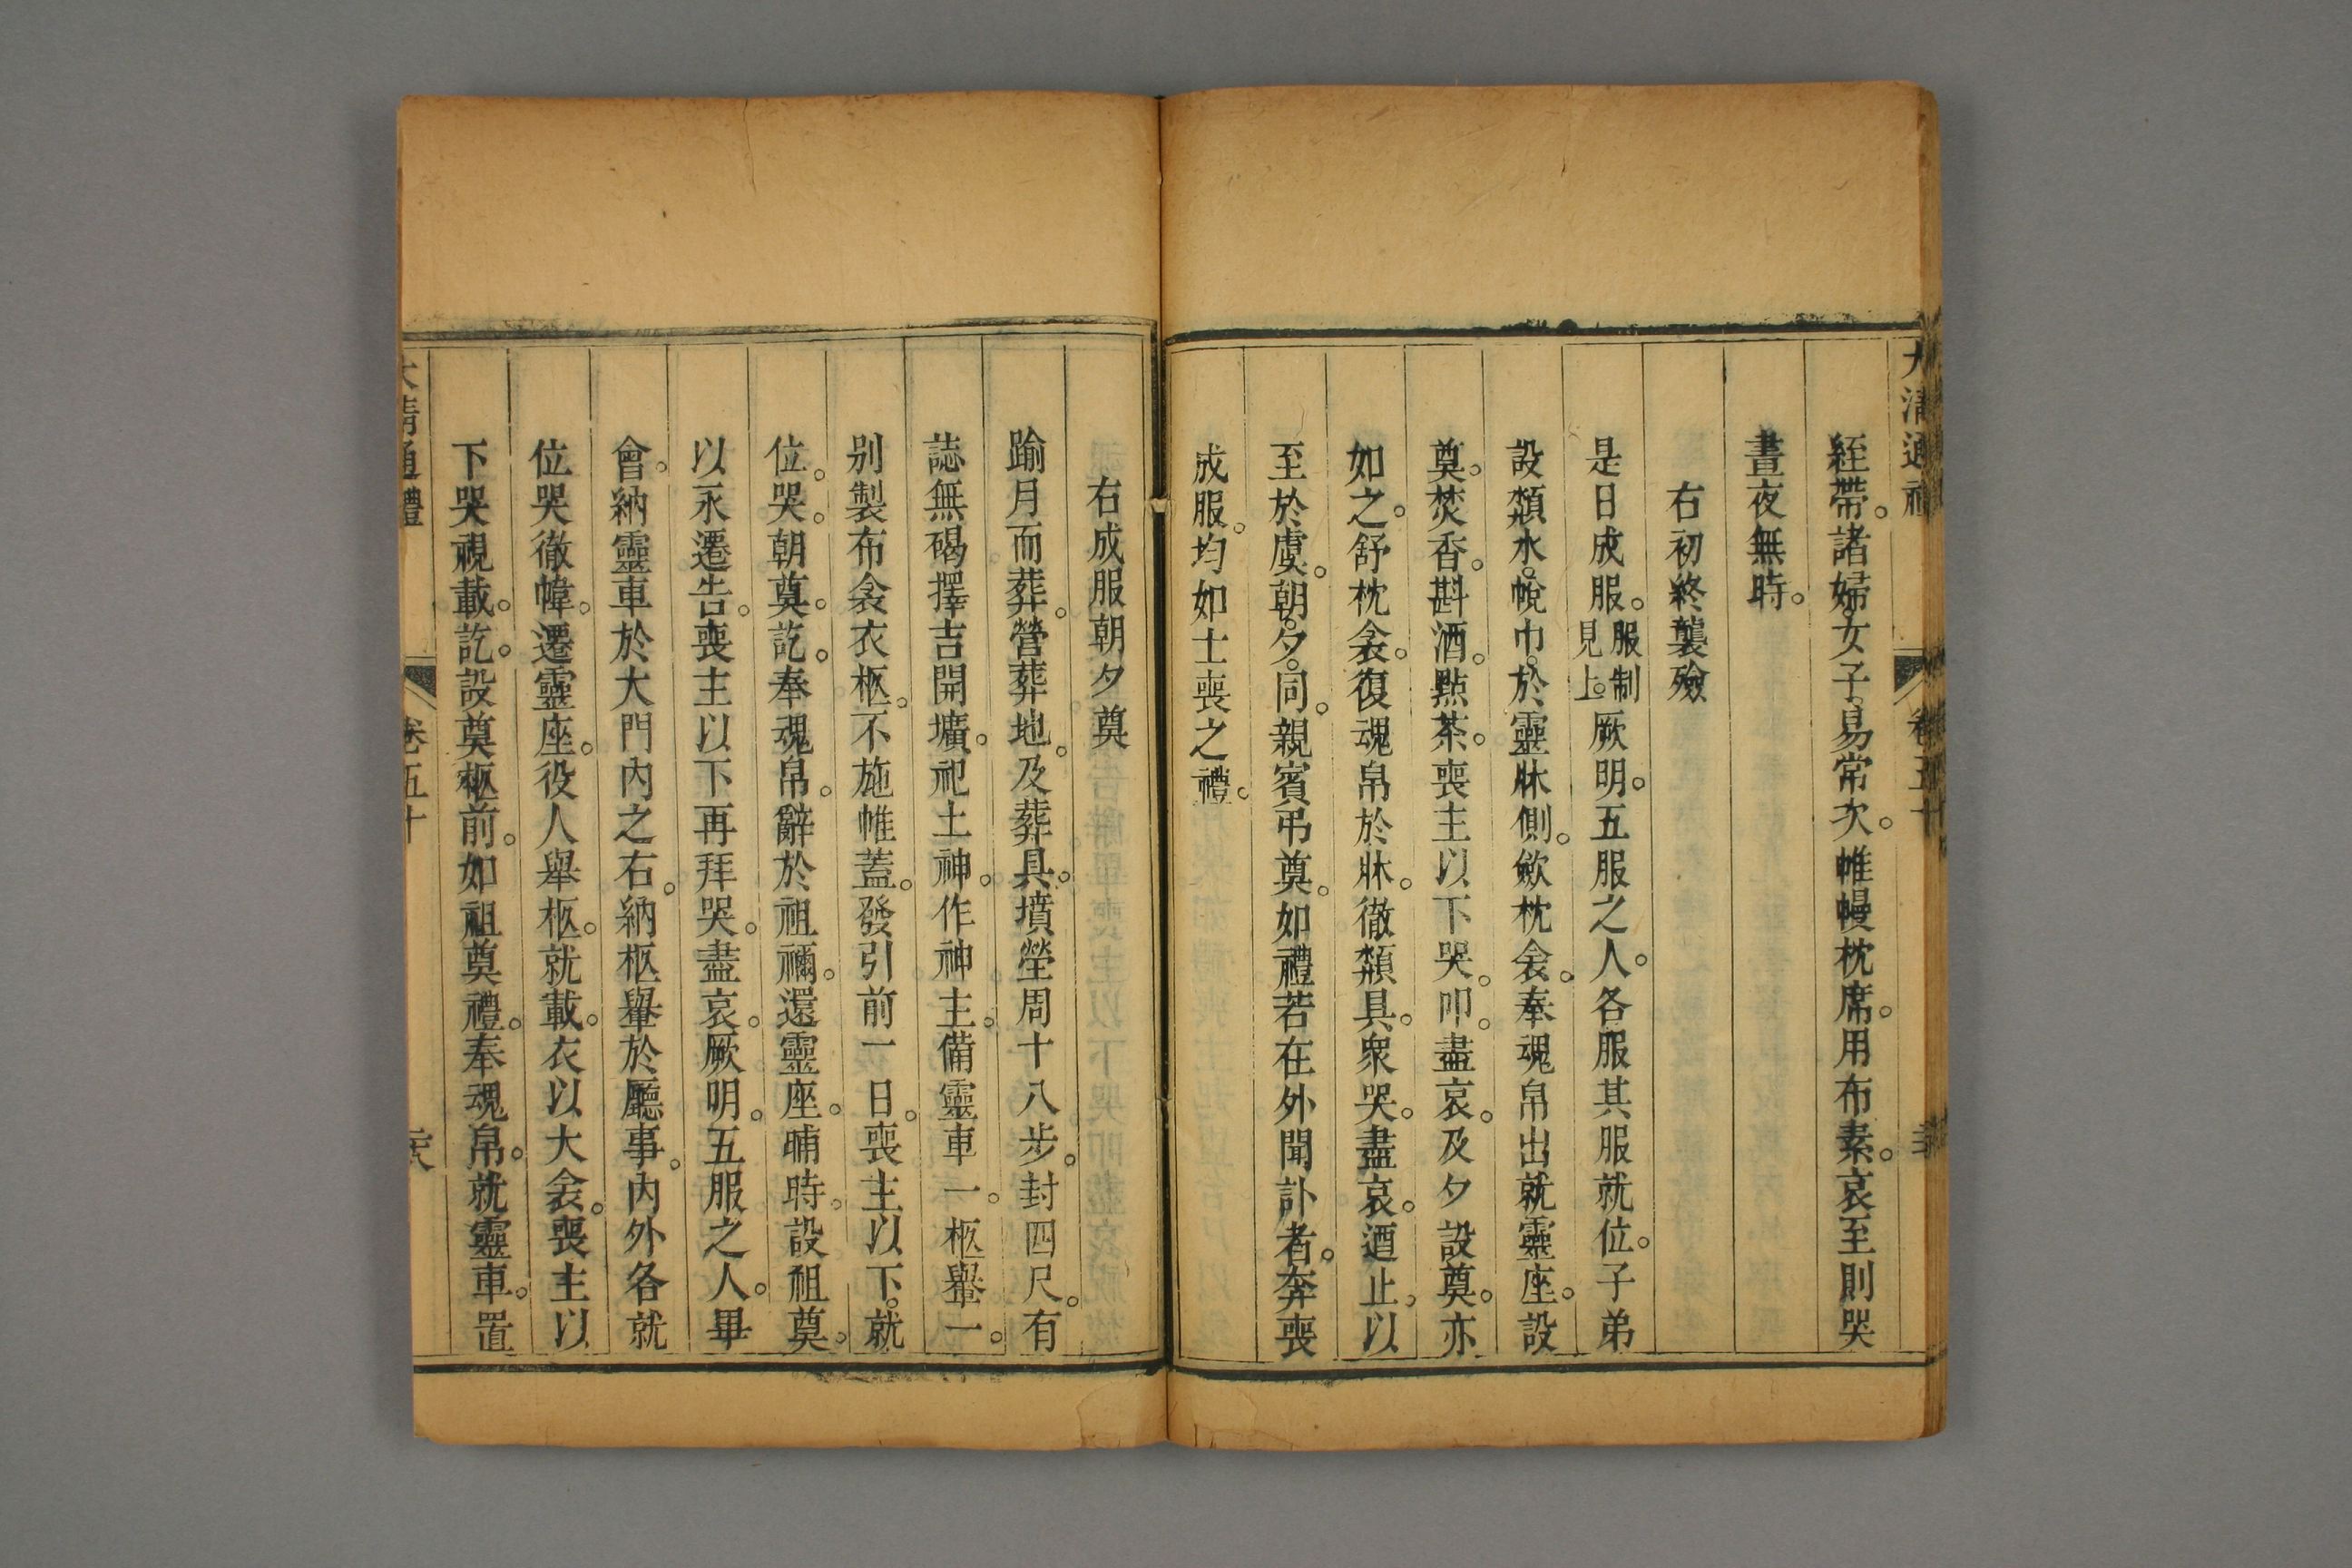 大清通禮 卷五十
絰帶。諸婦。女子。易常次。帷幔枕席。用布素。哀至則哭
晝夜無時。
右初終襲殮
是日成服。服制見上。厥明。五服之人。各服其服就位。子弟
設頮水。帨巾。於靈牀側。斂枕衾。奉魂帛出就靈座。設
奠。焚香。斟酒。點茶。喪主以下哭。叩。盡哀。及夕設奠。亦
如之。舒枕衾。復魂帛於牀。徹頮具。衆哭。盡哀。迺止。以
至於虞。朝。夕。同。親賓弔奠。如禮若在外聞訃者。奔喪
成服。均如士喪之禮。
右成服朝夕奠
踰月而葬。營葬地。及葬具。墳塋周十八步。封四尺。有
誌無碣擇吉開壙。祀土神。作神主。備靈車一。柩轝一。
别製布衾衣柩。不施帷蓋。發引前一日。喪主以下。就
位。哭。朝奠。訖。奉魂帛。辭於祖禰。還靈座。晡時。設祖奠。
以永遷告。喪主以下再拜哭。盡哀。厥明。五服之人。畢
會。納靈車於大門內之右。納柩轝於廳事。內外各就
位哭徹幃。遷靈座。役人舉柩。就載。衣以大衾。喪主以
下哭視載。訖。設奠柩前。如祖奠禮。奉魂帛。就靈車。置
大清通禮 卷五十